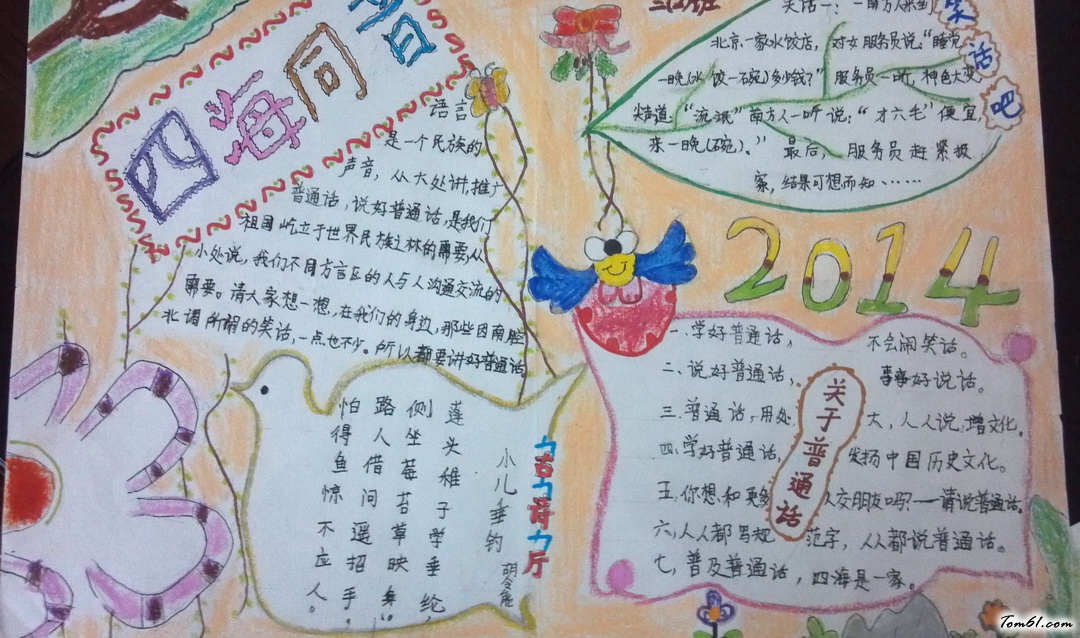 四海同音
语言
是一个民族的
声音，从大处讲,推广
普通话，说好普通话,是我们
祖国屹立于世界民族之林的需要从
小处说，我们不同方言区的人与人沟通交流的
需要。请大家想一想,在我们的身边，那些因南腔
北调所闹的笑话,一点也不少。所以都要讲好普通话
古诗厅
小儿垂钓
胡令能
莲头稚子学垂纶，
侧坐莓苔草映身。
路人借问遥招手，
怕得鱼惊不应人。
笑话吧
笑话一：一南方人来到
北京一家水饺店，对女服务员说："睡觉
一晚(水饺一碗)多少钱？"服务员一听，神色大变
道："流氓"南方人一听说："才六毛"便宜，
来一晚(碗)。"最后，服务员赶紧报
察，结果可想而知……
2014
关于普通话
一.学好普通话，不会闹笑话。
二、说好普通话，事事好说话。
三.普通话，用处大，人人说,增文化。
四.学好普通话，发扬中国历史文化。
五.你想和更多人交朋友吗?——请说普通话。
六,人人都写规范字，人人都说普通话。
七,普及普通话，四海是一家。
Tom61.com